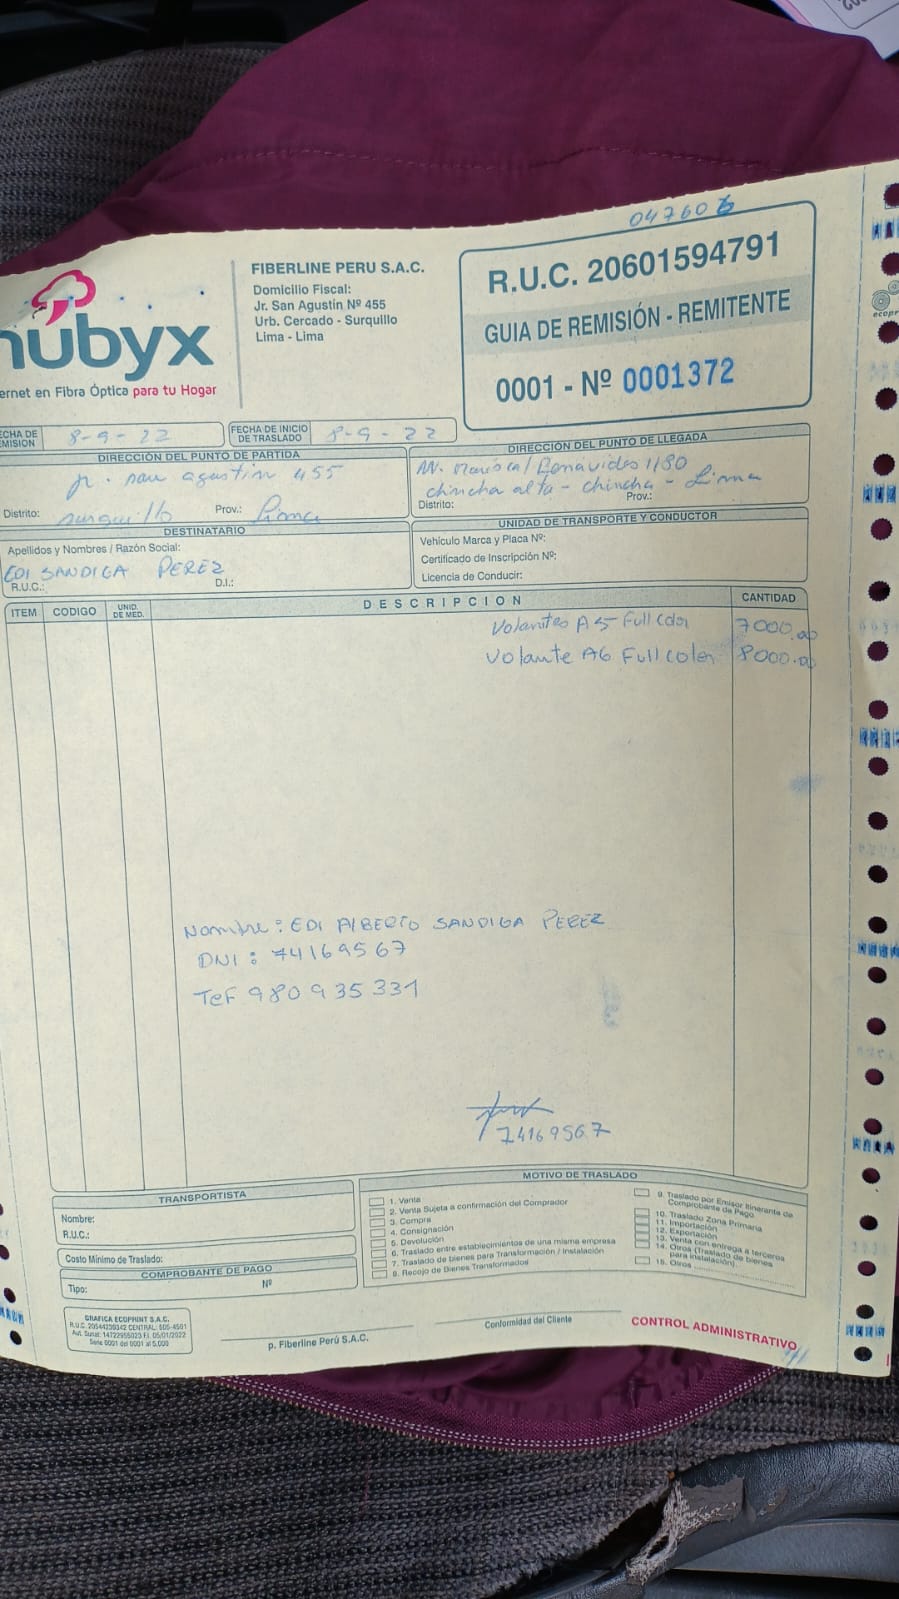 047606
nubyx
ernet en Fibra Óptica para tu Hogar
FIBERLINE PERU S.A.C.
Domicilio Fiscal:
Jr. San Agustín Nº 455
Urb. Cercado - Surquillo
Lima - Lima
R.U.C. 20601594791
GUIA DE REMISIÓN - REMITENTE
0001 - Nº 0001372
ECHA DE
MISION
8-9-22
FECHA DE INICIO
DE TRASLADO
8-9-22
DIRECCIÓN DEL PUNTO DE PARTIDA
jr. san agustin 455
Distrito: surquillo Prov.: Lima
DIRECCIÓN DEL PUNTO DE LLEGADA
Benavides 1180
chincha alta - chincha - Lima
Distrito: Prov.:
DESTINATARIO
Apellidos y Nombres / Razón Social:
EDI SANDIGA PEREZ
R.U.C.: D.I.:
UNIDAD DE TRANSPORTE Y CONDUCTOR
Vehículo Marca y Placa Nº:
Certificado de Inscripción Nº:
Licencia de Conducir:
ITEM CODIGO UNID. DE MED. DESCRIPCION CANTIDAD
Volantes A5 Full Color 7000.00
Volante A6 Full color 8000.00
Nombre: EDI AlBERTO SANDIGA PEREZ
DNI: 74169567
Tef 980935331
74169567
TRANSPORTISTA
Nombre:
R.U.C.:
Costo Mínimo de Traslado:
COMPROBANTE DE PAGO
Tipo: Nº
MOTIVO DE TRASLADO
1. Venta
2. Venta Sujeta a confirmación del Comprador
3. Compra
4. Consignación
5. Devolución
6. Traslado entre establecimientos de una misma empresa
7. Traslado de bienes para Transformación / Instalación
8. Recojo de Bienes Transformados
9. Traslado por Emisor Itinerante de
Comprobante de Pago
10. Traslado Zona Primaria
11. Importación
12. Exportación
13. Venta con entrega a terceros
14. Otros (Traslado de bienes
para instalación).
15. Otros
GRAFICA ECOPRINT S.A.C.
R.U.C. 20544236342 CENTRAL: 605-4501
Aut. Sunat: 14722955023 F.I. 05/01/2022
Serie 0001 del 0001 al 5,000
p. Fiberline Perú S.A.C.
Conformidad del Cliente
CONTROL ADMINISTRATIVO